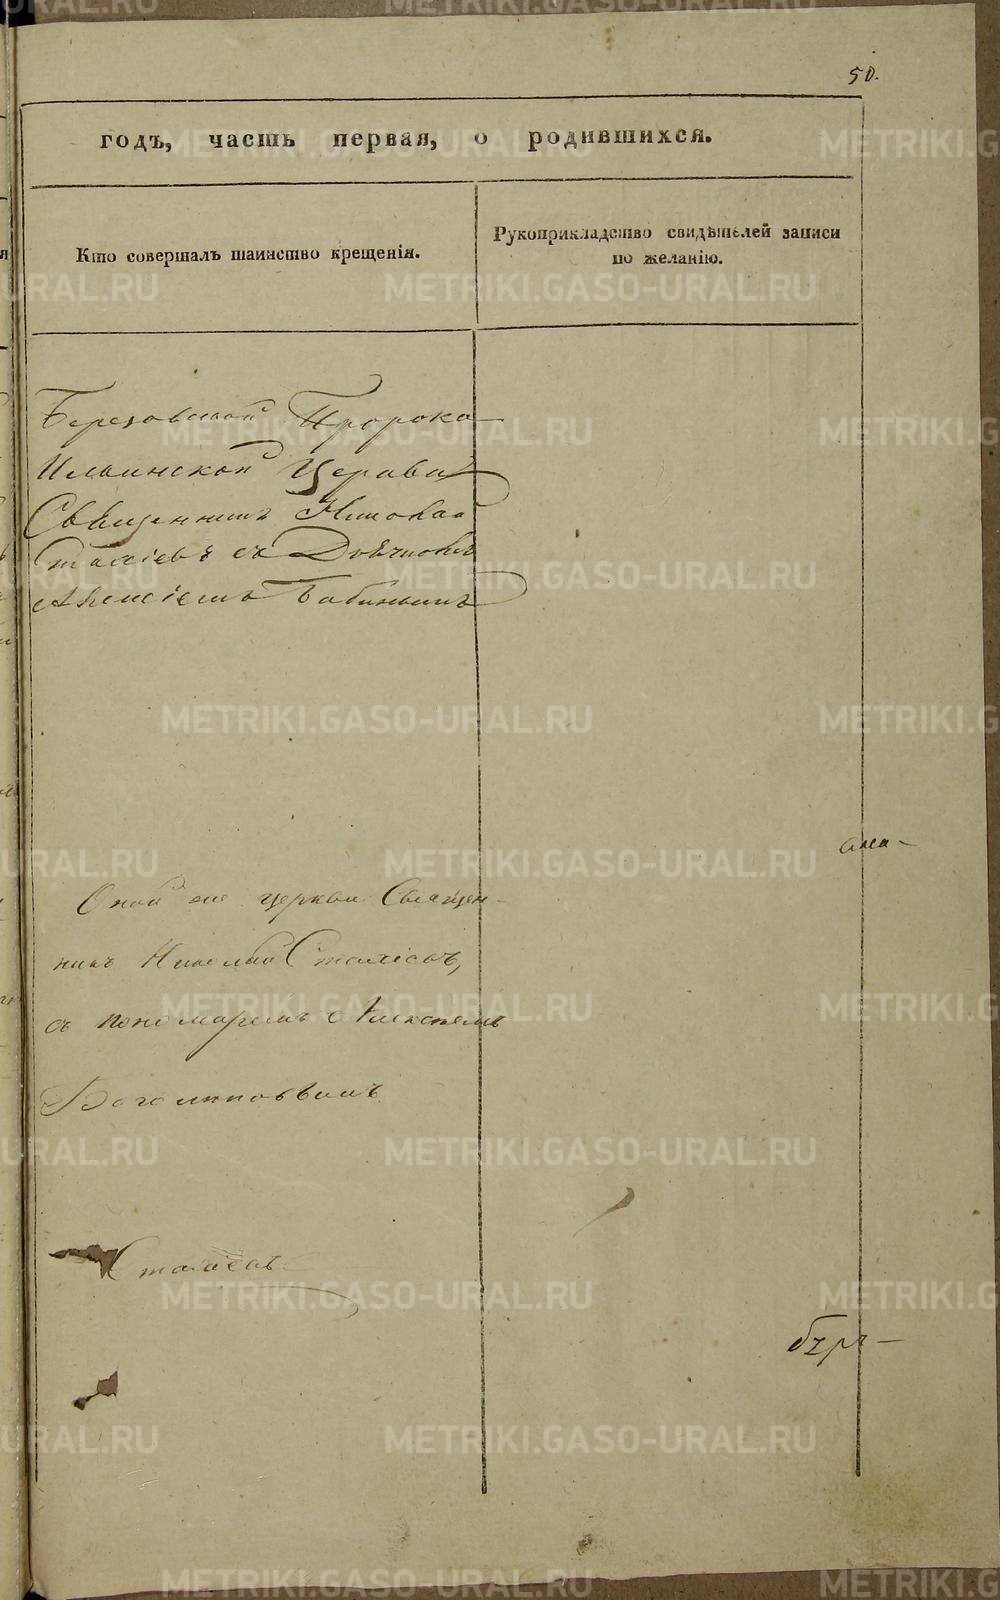 50.
годъ, часть первая, о родившихся.
Кто совершалъ таинство крещенія.
Рукоприкладство свидѣтелей записи
по желанію.
Березовской Пророко
Ильинской Церкви
Священникъ Николай
Сталіевъ съ Дьячкомъ
Алексіемъ Бабинымъ
Оной же церкви Священ-
никъ Николай
съ пономаремъ Алексѣемъ
Боголиповымъ
METRIKI.GASO-URAL.RU